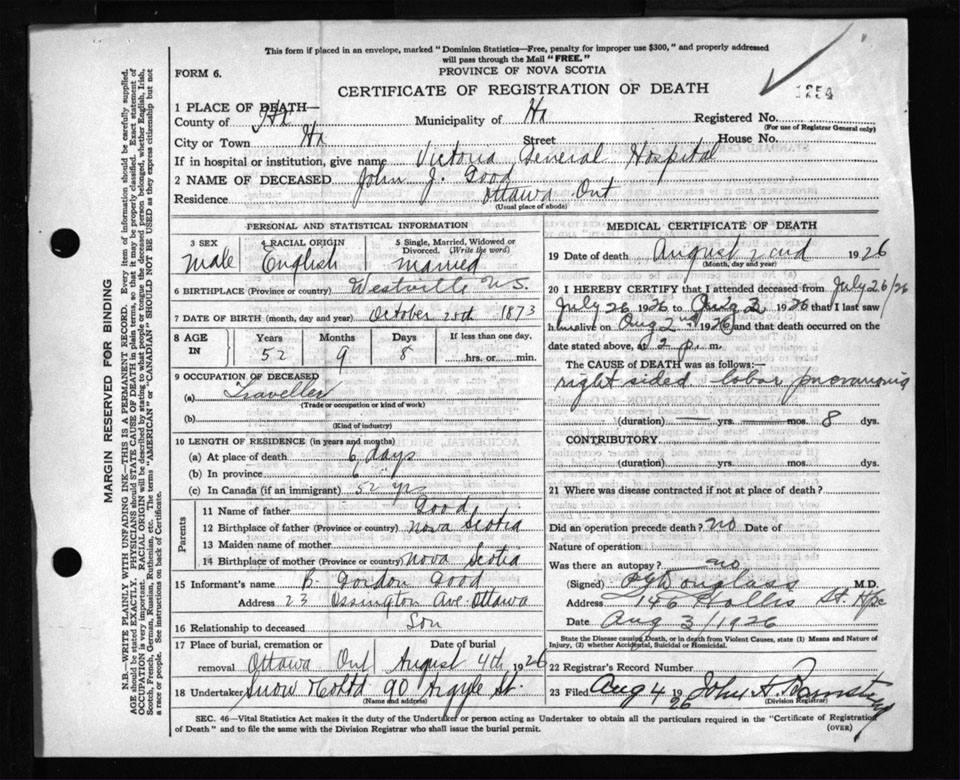 This form if placed in an envelope, marked "Dominion Statistics—Free, penalty for improper use $300," and properly addressed
will pass through the Mail "FREE."
PROVINCE OF NOVA SCOTIA
FORM 6.
CERTIFICATE OF REGISTRATION OF DEATH
1254
1 PLACE OF DEATH—
County of Hx Municipality of Hx Registered No.
(For use of Registrar General only)
City or Town Hx Street House No.
If in hospital or institution, give name Victoria General Hospital
2 NAME OF DECEASED John J. Good
Residence Ottawa Ont
(Usual place of abode)
PERSONAL AND STATISTICAL INFORMATION
3 SEX 4 RACIAL ORIGIN 5 Single, Married, Widowed or Divorced. (Write the word)
Male English Married
6 BIRTHPLACE (Province or country) Westville N.S.
7 DATE OF BIRTH (month, day and year) October 25th 1873
8 AGE IN Years Months Days If less than one day,
52 9 8 hrs. or min.
9 OCCUPATION OF DECEASED
(a) Traveller
(Trade or occupation or kind of work)
(b)
(Kind of industry)
10 LENGTH OF RESIDENCE (in years and months)
(a) At place of death 6 days
(b) In province 6 "
(c) In Canada (if an immigrant) 52 yrs
Parents
11 Name of father Good
12 Birthplace of father (Province or country) Nova Scotia
13 Maiden name of mother
14 Birthplace of mother (Province or country) Nova Scotia
15 Informant's name B. Gordon Good
Address 23 Ossington Ave. Ottawa
16 Relationship to deceased Son
17 Place of burial, cremation or removal Date of burial
Ottawa Ont August 4th, 1926
18 Undertaker Snow & Co Ltd 90 Argyle St.
(Name and address)
MEDICAL CERTIFICATE OF DEATH
19 Date of death August 2nd 1926
(Month, day and year)
20 I HEREBY CERTIFY that I attended deceased from July 26/26
July 26 1926 to Aug 2 1926 that I last saw
h im alive on Aug 2nd 1926 and that death occurred on the
date stated above, at 2 p. m.
The CAUSE OF DEATH was as follows:—
right sided lobar pneumonia
(duration) yrs. mos. 8 dys.
CONTRIBUTORY
(duration) yrs. mos. dys.
21 Where was disease contracted if not at place of death?
Did an operation precede death? no Date of
Nature of operation
Was there an autopsy? no
(Signed) Douglass M.D.
Address 146 Hollis St. Hfx
Date Aug 3/1926
State the Disease causing Death, or in death from Violent Causes, state (1) Means and Nature of
Injury, (2) whether Accidental, Suicidal or Homicidal.
22 Registrar's Record Number
23 Filed Aug 4 1926 John A.
(Division Registrar)
SEC. 46—Vital Statistics Act makes it the duty of the Undertaker or person acting as Undertaker to obtain all the particulars required in the "Certificate of Registration
of Death" and to file the same with the Division Registrar who shall issue the burial permit.
(OVER)
MARGIN RESERVED FOR BINDING
N.B.—WRITE PLAINLY WITH UNFADING INK—THIS IS A PERMANENT RECORD. Every item of information should be carefully supplied.
AGE should be stated EXACTLY. PHYSICIANS should STATE CAUSE OF DEATH in plain terms, so that it may be properly classified. Exact statement of
OCCUPATION is very important. RACIAL ORIGIN will be described by stating to what people or tongue the deceased person belonged, whether English, Irish,
Scotch, French, German, Russian, Ruthenian, etc. The terms "AMERICAN" or "CANADIAN" SHOULD NOT BE USED as they express citizenship but not
a race or people. See instructions on back of Certificate.